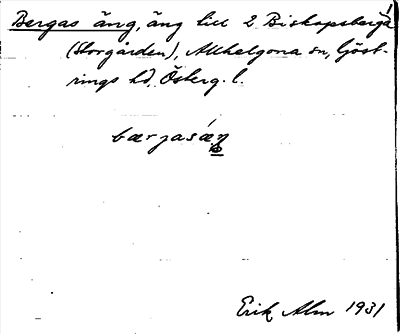 Bergas äng, äng till 2 Biskopsberga
(Storgården), Allhelgona sn, Göst-
rings hd, Österg. l.
bærjasáŋ
Erik Alm 1931